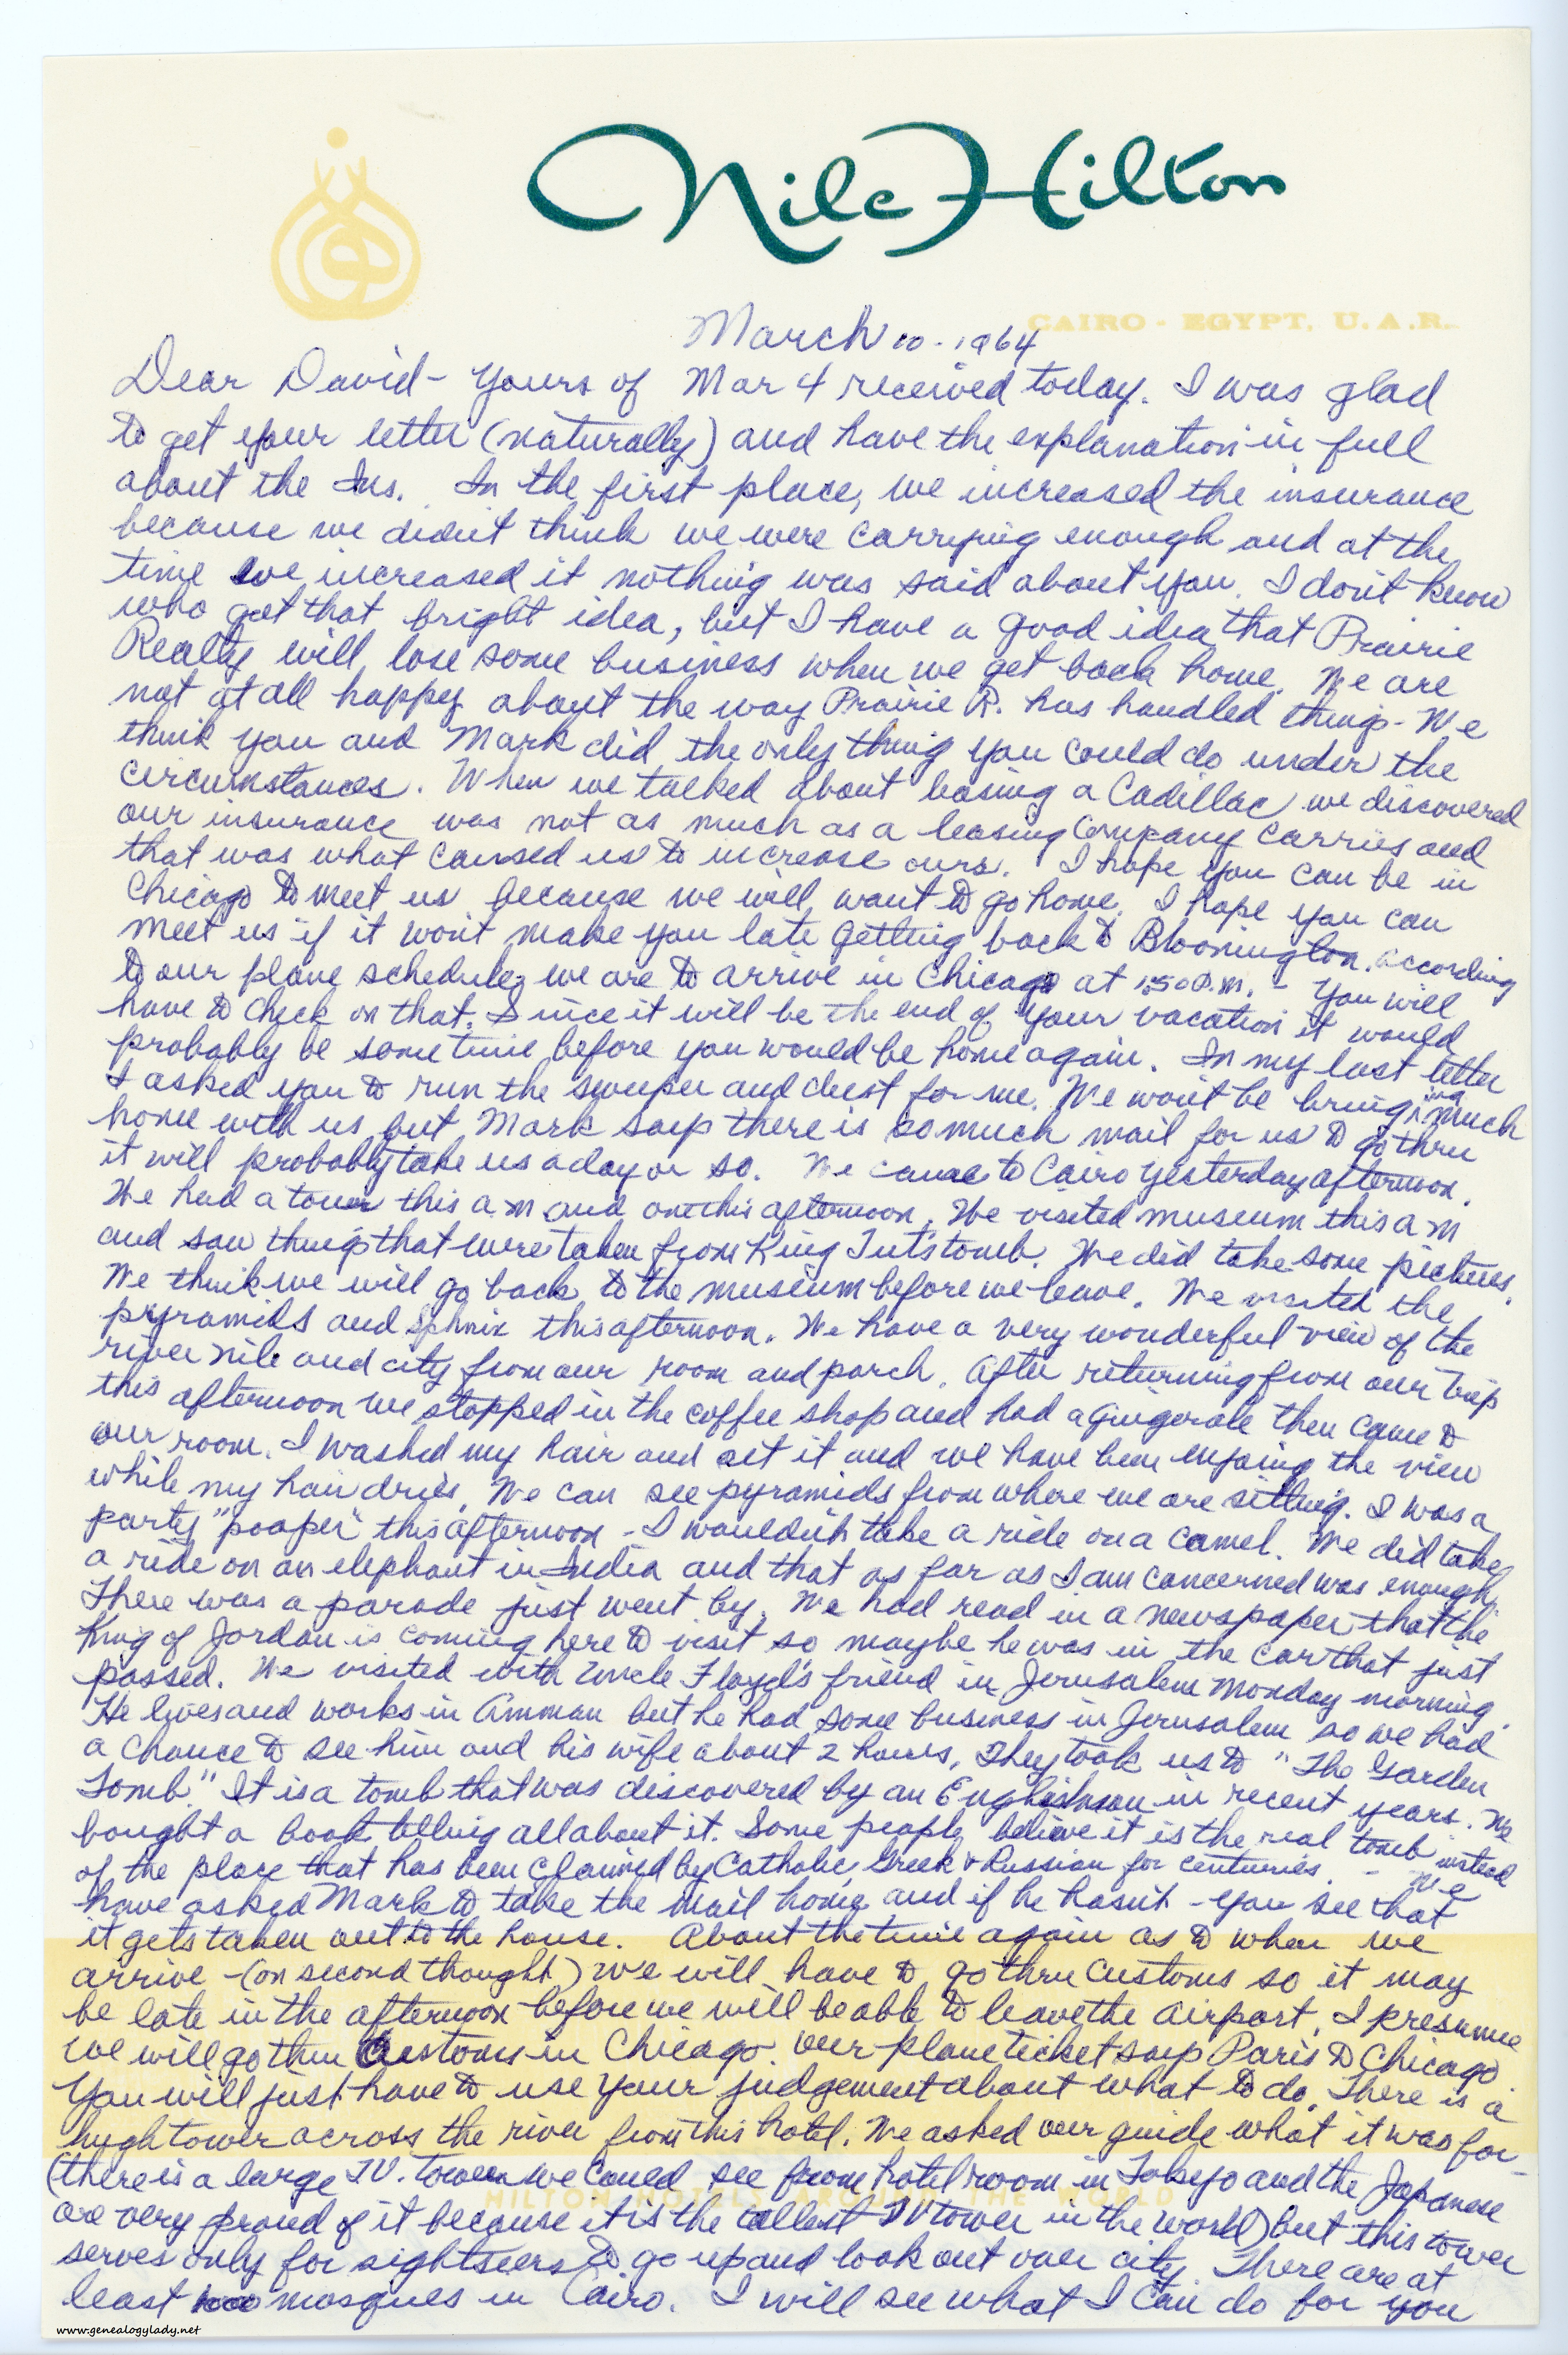 Nile Hilton
CAIRO - EGYPT, U.A.R.
March 10 - 1964
Dear David - Yours of Mar 4 received today. I was glad
to get your letter (naturally) and have the explanation in full
about the Ins. In the first place, we increased the insurance
because we didn't think we were carrying enough and at the
time we increased it nothing was said about you. I don't know
who got that bright idea, but I have a good idea that Prairie
Realty will lose some business when we get back home. We are
not at all happy about the way Prairie R. has handled things - We
think you and Mark did the only thing you could do under the
circumstances. When we talked about leasing a Cadillac we discovered
our insurance was not as much as a leasing Company carries and
that was what caused us to increase ours. I hope you can be in
Chicago to meet us because we will want to go home. I hope you can
meet us if it won't make you late getting back to Bloomington. According
to our plane schedule, we are to arrive in Chicago at 1:50 P.M. - You will
have to check on that. Since it will be the end of your vacation it would
probably be some time before you would be home again. In my last letter
I asked you to run the sweeper and dust for me. We won't be bringing much
home with us but Mark says there is so much mail for us to go thru
it will probably take us a day or so. We came to Cairo yesterday afternoon.
We had a tour this a m and one this afternoon. We visited museum this a m
and saw things that were taken from King Tut's tomb. We did take some pictures.
We think we will go back to the museum before we leave. We visited the
pyramids and Sphnix this afternoon. We have a very wonderful view of the
river nile and city from our room and porch. After returning from our trip
this afternoon we stopped in the coffee shop and had a gingerale then came to
our room. I washed my hair and set it and we have been enjoing the view
while my hair dries. We can see pyramids from where we are sitting. I was a
party "pooper" this afternoon - I wouldn't take a ride on a camel. We did take
a ride on an elephant in India and that as far as I am concerned was enough.
There was a parade just went by. We had read in a newspaper that the
King of Jordan is coming here to visit so maybe he was in the car that just
passed. We visited with Uncle Floyd's friend in Jerusalem Monday morning.
He lives and works in Amman but he had some business in Jerusalem so we had
a chance to see him and his wife about 2 hours. They took us to "The Garden
Tomb." It is a tomb that was discovered by an Englishman in recent years. We
bought a book telling all about it. Some people believe it is the real tomb instead
of the place that has been claimed by Catholic, Greek & Russian for centuries. - We
have asked Mark to take the mail home and if he hasn't - you see that
it gets taken out to the house. About the time again as to when we
arrive - (on second thought) we will have to go thru Customs so it may
be late in the afternoon before we will be able to leave the airport. I presume
we will go thru Customs in Chicago. Our plane ticket says Paris to Chicago
You will just have to use your judgement about what to do. There is a
hugh tower across the river from this hotel. We asked our guide what it was for -
(there is a large T.V. tower we could see from hotel room in Tokeyo and the Japanese
are very proud of it because it is the tallest TV tower in the world) but this tower
serves only for sightseers to go up and look out over city. There are at
least 1000 mosques in Cairo. I will see what I can do for you
HILTON HOTELS AROUND THE WORLD
www.genealogylady.net